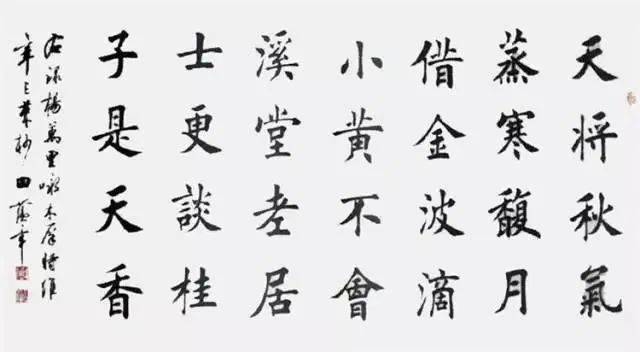 天将秋氣
蒸寒馥月
借金波滴
小黄不會
溪堂老居
士更談桂
子是天香
右録楊萬里咏木犀詩
辛巳 田蘊章